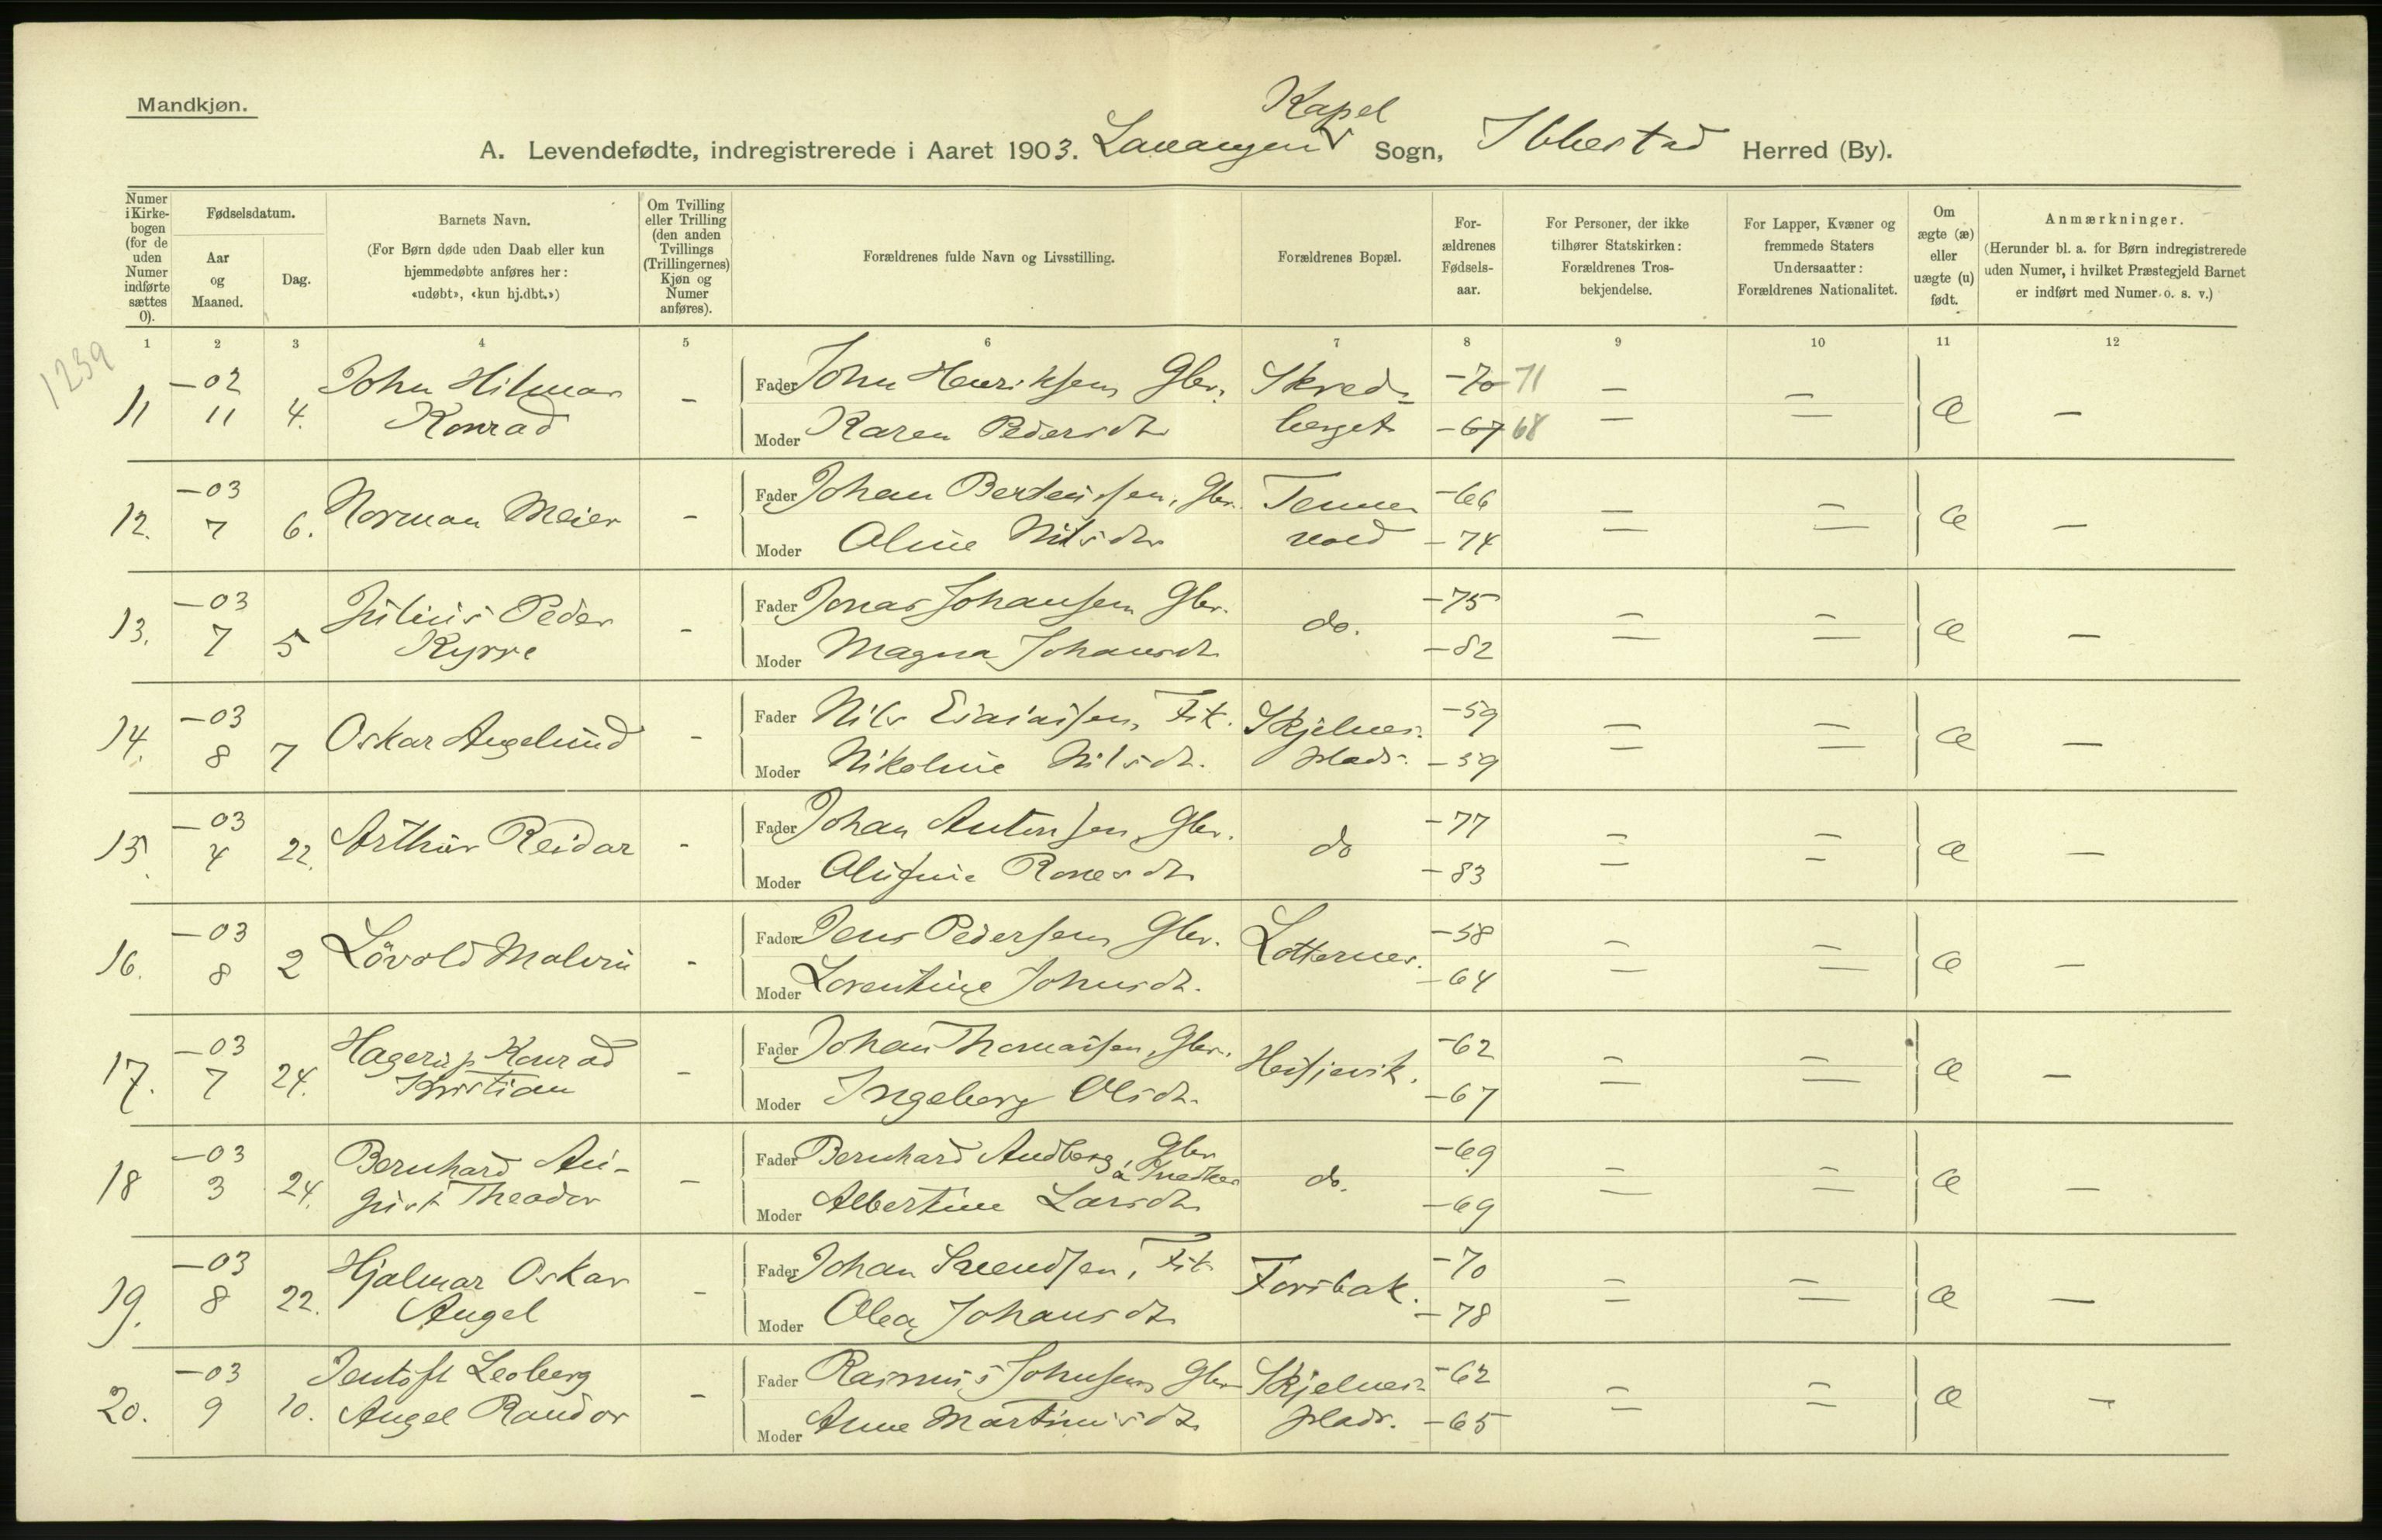 Mandkjøn.
Kapel
A. Levendefødte, indregistrerede i Aaret 1903. Lavangen Sogn, Ibbestad Herred (By).
Numer i Kirkebogen (for de uden Numer indførte sættes 0).
Fødselsdatum.
Aar og Maaned.
Dag.
Barnets Navn.
(For Børn døde uden Daab eller kun
hjemmedøbte anføres her:
«udøbt», «kun hj.dbt.»)
Om Tvilling eller Trilling (den anden Tvillings (Trillingernes) Kjøn og Numer anføres).
Forældrenes fulde Navn og Livsstilling.
Forældrenes Bopæl.
For-
ældrenes
Fødsels-
aar.
For Personer, der ikke
tilhører Statskirken:
Forældrenes Tros-
bekjendelse.
For Lapper, Kvæner og
fremmede Staters
Undersaatter:
Forældrenes Nationalitet.
Om
ægte (æ)
eller
uægte (u)
født.
Anmærkninger.
(Herunder bl. a. for Børn indregistrerede
uden Numer, i hvilket Præstegjeld Barnet
er indført med Numer o. s. v.)
1 2 3 4 5 6 7 8 9 10 11 12
1239
11 -02 11 4. John Hilmar Konrad - Fader John Henriksen Gbr. Skred- -70 71 - = æ -
Moder Karen Pedersdt berget -67 68 -
12. -03 7 6. Norman Meier - Fader Johan Berteussen, Gbr. Tenne -66 = = æ -
Moder Oline Nilsdtr vold -74
13. -03 7 5 Julius Peder Kyrre - Fader Jonas Johansen Gbr. do. -75 = = æ -
Moder Magna Johansdt -82
14. -03 8 7 Oskar Angelund - Fader Nils Esaiassen, Fisk. Skjelnes- -59 = = æ -
Moder Nikoline Nilsdt. plads. -59
15. -03 4 22. Arthur Reidar - Fader Johan Antonsen, Gbr. do -77 = = æ -
Moder -83
16. -03 8 2 Lövold Malvin - Fader Jens Pedersen Gbr. Lotternes. -58 = = æ -
Moder Lorentine Johnsdt. -64
17. -03 7 24. Hagerup Konrad Kristian - Fader Johan Thomassen, Gbr. -62 = = æ -
Moder Ingeborg Olsdt. -67
18 -03 3 24. Bernhard Au- gust Theodor - Fader Bernhard Andberg, Gbr á Snedker do. -69 = = æ -
Moder Albertine Larsdt -69
19. -03 8 22. Hjalmar Oskar Angel - Fader Johan Svendsen, Fisk. Forsbak. -70 = = æ -
Moder Olea Johansdt -78
20. -03 9 10. Jentoft Leoberg Angel Randor - Fader Rasmus Johnsen Gbr Skjelnes- -62 = = æ -
Moder Anne Martinusdt plads. -65